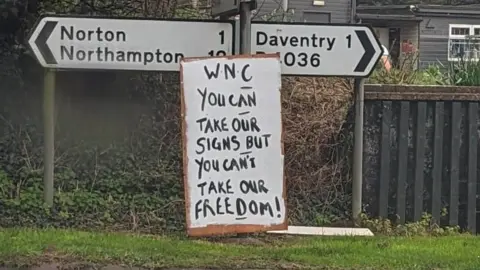 Norton 1
Northampton
Daventry 1
036
W.N.C
YOU CAN
TAKE OUR
SIGNS BUT
YOU CAN'T
TAKE OUR
FREEDOM!